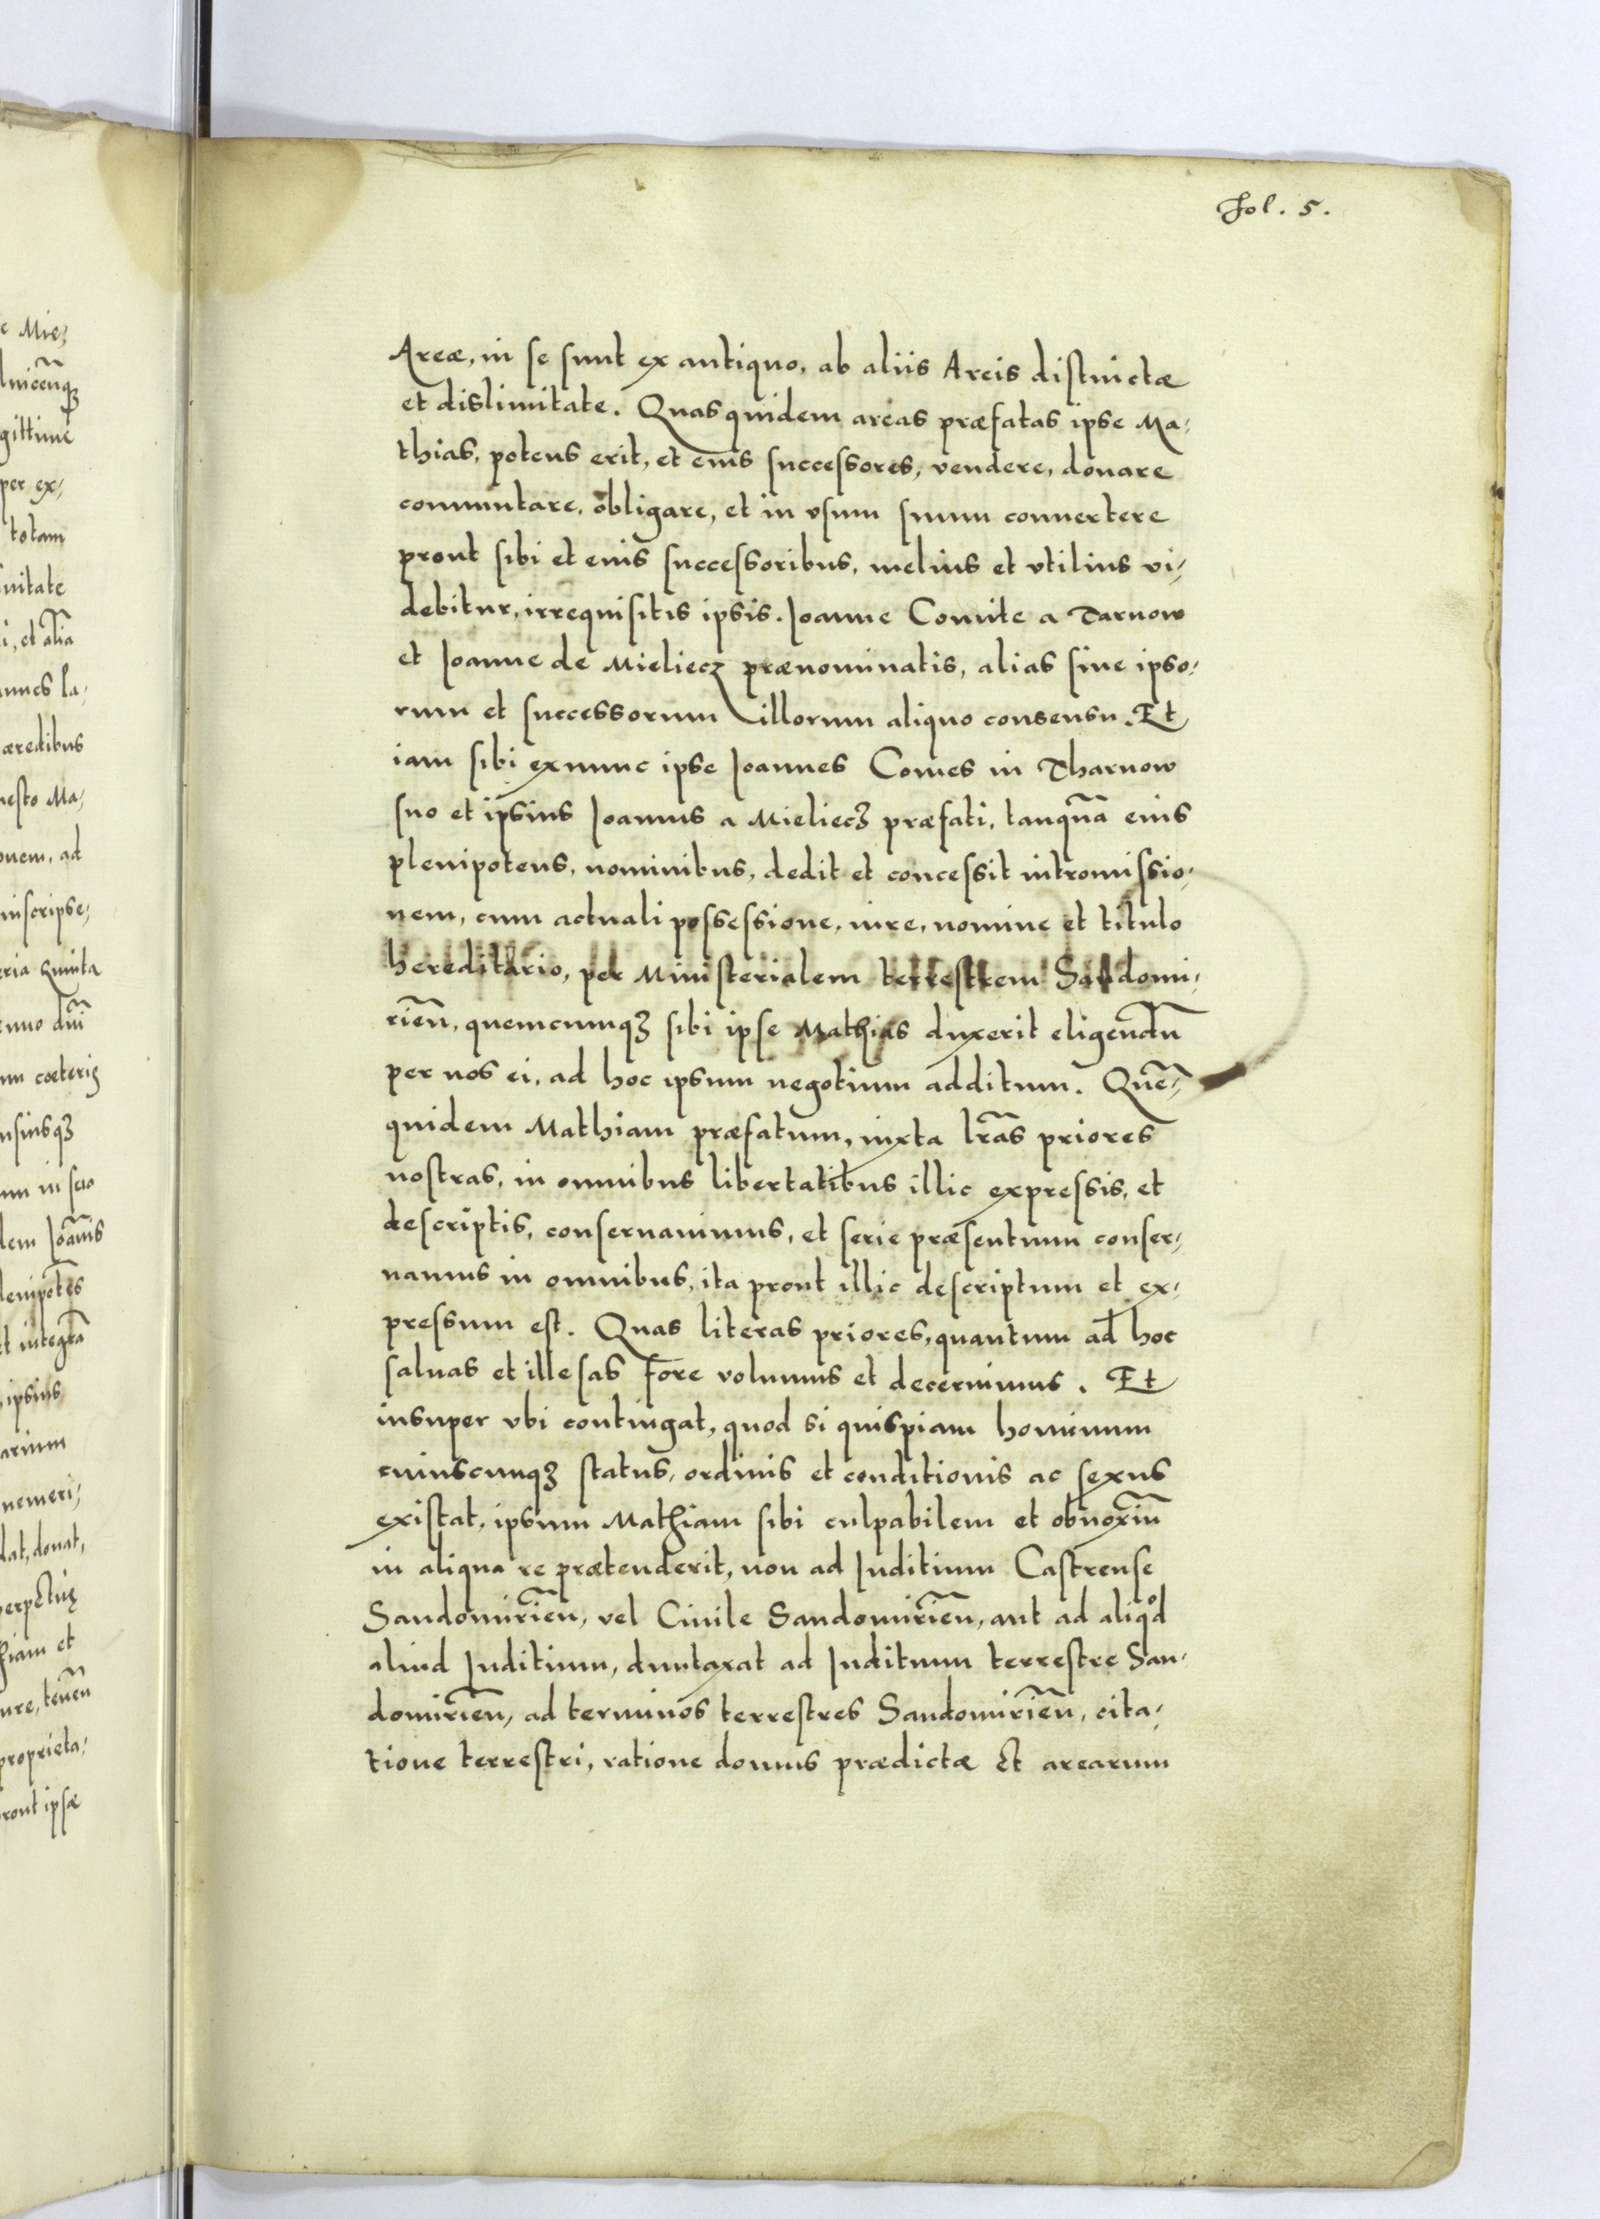 Fol. 5.
Areæ, in se sunt ex antiquo, ab aliis Areis distinctæ
et dislimitate. Quas quidem areas præfatas ipse Ma-
thias, potens erit, et eius successores, vendere, donare
commutare, obligare, et in vsum suum conuertere
prout sibi et eius successoribus, melius et vtilius vi-
debitur, irrequisitis ipsis. Joanne Comite a Tarnow
et Joanne de Mieliecz prænominatis, alias sine ipso-
rum et successorum illorum aliquo consensu. Et
iam sibi exnunc ipse Joannes Comes in Tharnow
suo et ipsius Joannis a Mieliecz præfati, tanquā eius
plenipotens, nominibus, dedit et concessit intromissio-
nem, cum actuali possessione, iure, nomine et titulo
hereditario, per Ministerialem terrestrem Sandomi-
rien̄, quemcunqꝫ sibi ipse Mathias duxerit eligendū
per nos ei, ad hoc ipsum negotium additum. Quē-
quidem Mathiam præfatum, iuxta lr̄as priores
nostras, in omnibus libertatibus illic expressis, et
descriptis, conseruauimus, et serie præsentium conser-
uamus in omnibus, ita prout illic descriptum et ex-
pressum est. Quas literas priores, quantum ad hoc
saluas et illesas fore volumus et decernimus. Et
insuper vbi contingat, quod si quispiam hominum
cuiuscunqꝫ status, ordinis et conditionis ac sexus
existat, ipsum Mathiam sibi culpabilem et obnoxiū
in aliqua re prætenderit, non ad Juditium Castrense
Sandomirien̄, vel Ciuile Sandomirien̄, aut ad aliqod
aliud Juditium, duntaxat ad Juditium terrestre San-
domirien̄, ad terminos terrestres Sandomirien̄, cita-
tione terrestri, ratione domus prædictæ et arearum